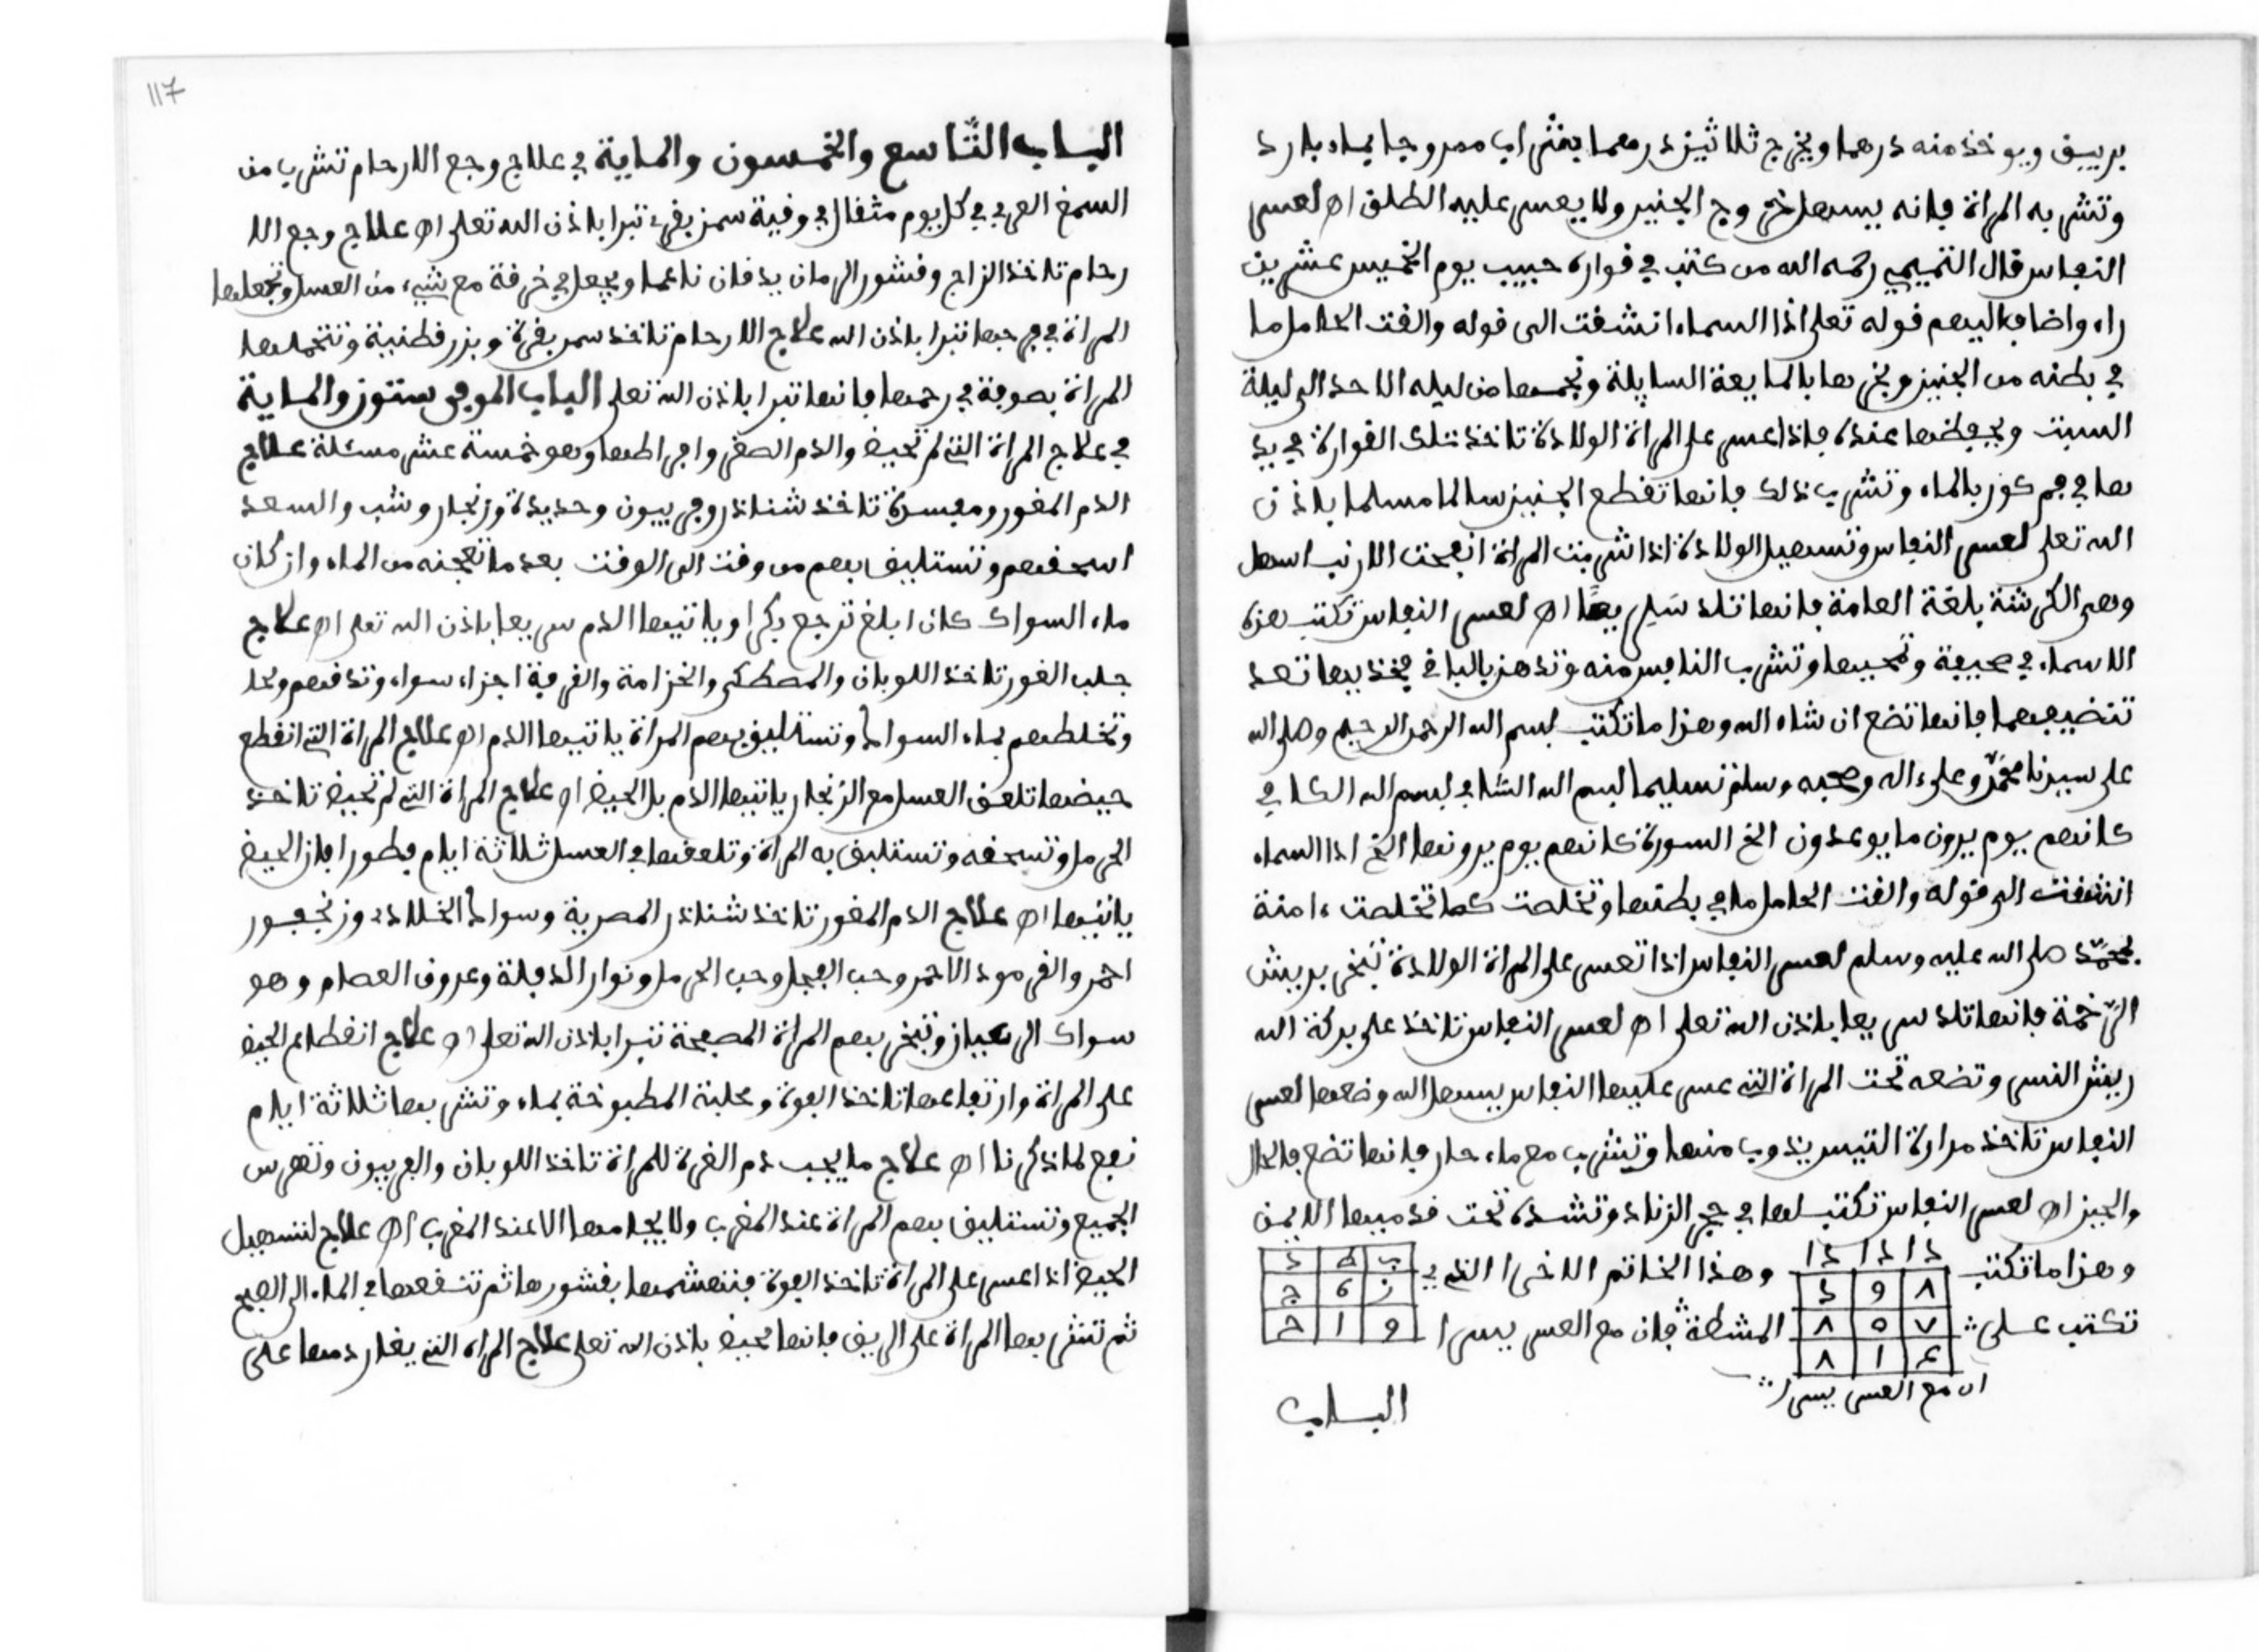 بريق ويوخذ منه درهما ويخرج ثلاثين درهما بشراب ممروجا بماء بارد
وتشربه المراة فانه يسهل خروج الجنين ولا يعسر عليه الطلق اه لعسر
النفاس قال التميمي رحمه الله من كتب في قوارة حبيب يوم الخميس عشرين
راء واضاف اليهم قوله تعلى اذا السماء انشقت الى قوله والقت الحامل ما
في بطنه من الجنين ويخرها بالمايعة السايلة وتجمعها من ليله الاحد الى ليلة
السبت ويحفظها عنده فاذا عسر على المراة الولادة تاخذ تلك القوارة في يد
ها في فم كوز بالماء وتشرب ذلك فانها تقطع الجنين سالما مسلما باذن
الله تعلى لعسر النفاس وتسهيل الولادة اذا شربت المراة انفحت الارنب اسهل
وهي الكرشة بلغة العامة فانها تلد سريعا اه لعسر النفاس تكتب هذه
الاسماء في صحيفة وتمحيها وتشرب النافس منه وتدهن بالباقي فخذيها تعد
تنضيفهما فانها تضع ان شاء الله وهذا ما تكتب بسم الله الرحمن الرحيم وصلى الله
على سيدنا محمد وعلى ءاله وصحبه وسلم تسليما بسم الله الشافي بسم الله الكافي
كانهم يوم يرون ما يوعدون الخ السورة كانهم يوم يرونها الخ اذا السماء
انشقت الى قوله والقت الحامل ما في بطنها وتخلصت كما تخلصت ءامنة
بمحمد صلى الله عليه وسلم لعسر النفاس اذا تعسر على المراة الولادة تبخر بريش
الرخمة فانها تلد سريعا باذن الله تعلى اه لعسر النفاس تاخذ على بركة الله
ريش النسر وتضعه تحت المراة التي عسر عليها النفاس يسهل الله وضعها لعسر
النفاس تاخذ مرارة التيس يذوب منها وتشرب مع ماء حار فانها تضع فالحال
والحين اه لعسر النفاس تكتب لها في حجر الزناد وتشده تحت قدميها الايمن
وهذا ما تكتب
دا دا دا دا
٨ ٩ د
٧ ٥ ٨
٤ ١ ٨
ان مع العسر يسرا
وهذا الخاتم الاخر الذي
ب ط د
ز ه ج
و ا ح
تكتب على المشطة فان مع العسر يسرا
الباب
117
الباب التاسع والخمسون والماية في علاج وجع الارحام تشرب من
السمغ العربي في كل يوم مثقال في وقية سمن بقري تبرا باذن الله تعلى اه علاج وجع الا
رحام تاخذ الزاج وقشور الرمان يدقان ناعما ويجعل في خرقة مع شيء من العسل وتجعلها
المراة في فرجها تبرا باذن الله علاج الارحام تاخذ سمن بقرة وبزر قطنية وتتحملها
المراة بصوفة في رحمها فانها تبرا باذن الله تعلى الباب الموفي ستون والماية
في علاج المراة التي لم تحيض والدم الصفر واجراطها وهو خمسة عشر مسئلة علاج
الدم المغور وميسرة تاخذ شناذر وفربيون وحديدة وزنجار وشب والسعد
اسحقهم وتستليق بهم من وقت الى الوقت بعد ما تعجنه من الماء وان كان
ماء السواك كان ابلغ ترجع بكرا وياتيها الدم سريعا باذن الله تعلى اه علاج
جلب الغور تاخذ اللوبان والمصطكى والخزامة والقرفة اجزاء سواء وتدقهم وتحل
وتخلطهم بماء السواك وتستليق بهم المراة ياتيها الدم اه علاج المراة التي انقطع
حيضها تلعق العسل مع الزنجار ياتيها الدم بالحيض اه علاج المراة التي لم تحيض تاخذ
الحرمل وتسحقه وتستليق به المراة وتلعقها في العسل ثلاثة ايام فطورا فان الحيض
ياتيها اه علاج الدم المغور تاخذ شناذر المصرية وسواك الخلاد وزنجفور
احمر والقرمود الاحمر وحب الفجل وحب الحرمل ونوار الدفلة وعروق العصام وهو
سواك الرعيان وتبخر بهم المراة المصفحة تبرا باذن الله تعلى اه علاج انقطاع الحيض
على المراة وارتفاعها تاخذ الفوة وحلبة المطبوخة بماء وتشربها ثلاثة ايام
نفع لما ذكرنا اه علاج ما يجب دم الغرة للمراة تاخذ اللوبان والفربيون وتهرس
الجميع وتستليق بهم المراة عند المغرب ولا يجامعها الا عند المغرب اه علاج لتسهيل
الحيض اذا عسر على المراة تاخذ الفوة فتهشمها بقشورها ثم تنقعها في الماء الى الصبح
ثم تشربها المراة على الريق فانها تحيض باذن الله تعلى علاج المراة التي يغار دمها على